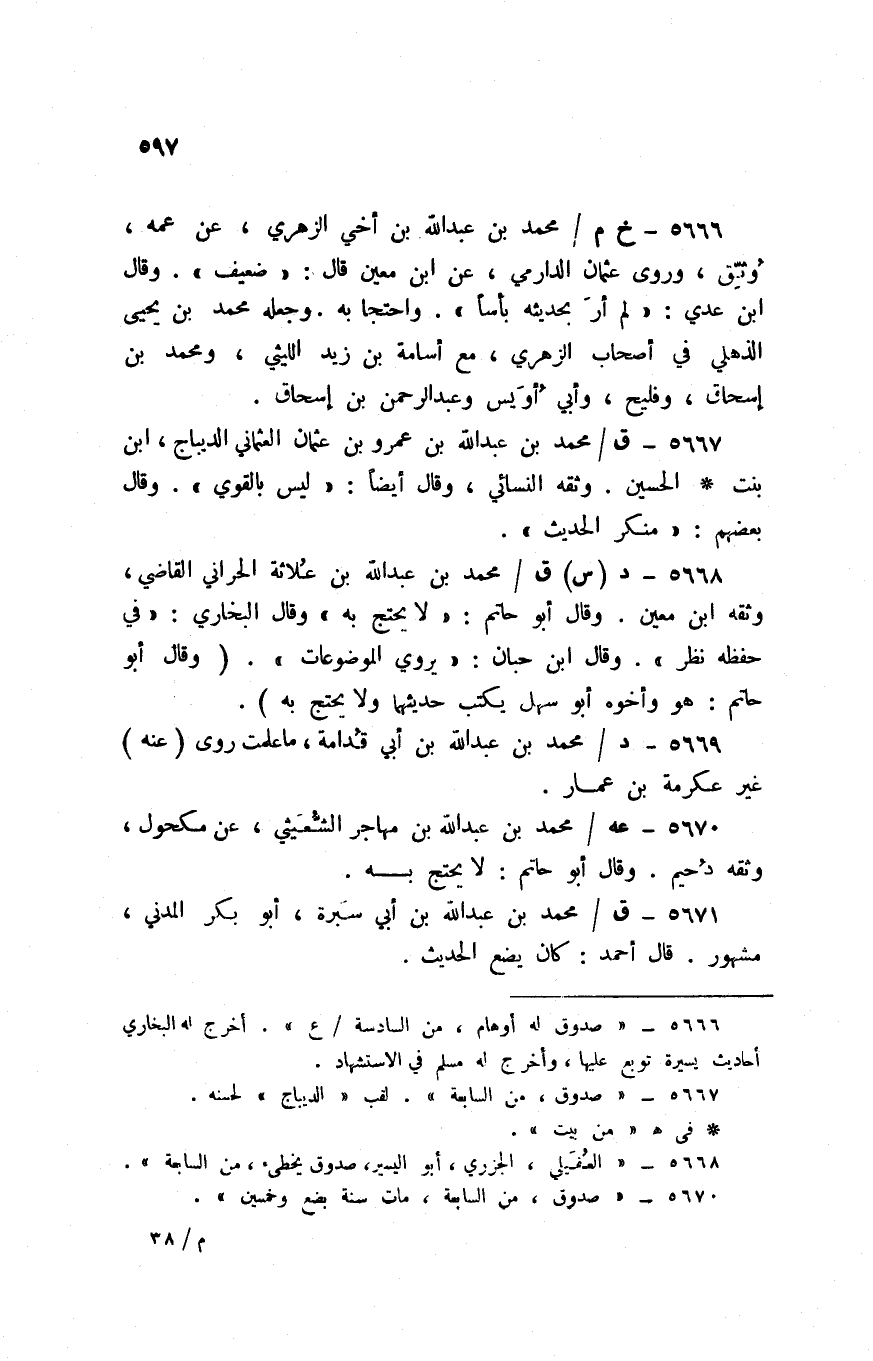 ٥٩٧
٥٦٦٦ – خ م / محمد بن عبدالله بن أخي الزهري ، عن عمه ،
وُثِّق ، وروى عثمان الدارمي ، عن ابن معين قال : « ضعيف » . وقال
ابن عدي : « لم أرَ بحديثه بأساً » . واحتجا به . وجعله محمد بن يحيى
الذهلي في أصحاب الزهري ، مع أسامة بن زيد الليثي ، ومحمد بن
إسحاق ، وفليح ، وأبي أُوَيس وعبدالرحمن بن إسحاق .
٥٦٦٧ – ق / محمد بن عبدالله بن عمرو بن عثمان العثماني الديباج ، ابن
بنت * الحسين . وثقه النسائي ، وقال أيضاً : « ليس بالقوي » . وقال
بعضهم : « منكر الحديث » .
٥٦٦٨ – د (س) ق / محمد بن عبدالله بن عُلاثة الحراني القاضي ،
وثقه ابن معين . وقال أبو حاتم : « لا يحتج به » وقال البخاري : « في
حفظه نظر » . وقال ابن حبان : « يروي الموضوعات » . ( وقال أبو
حاتم : هو وأخوه أبو سهل يكتب حديثهما ولا يحتج به ) .
٥٦٦٩ – د / محمد بن عبدالله بن أبي قُدامة ، ماعلمت روى ( عنه )
غير عكرمة بن عمار .
٥٦٧٠ – عه / محمد بن عبدالله بن مهاجر الشُّعَيثي ، عن مكحول ،
وثقه دُحيم . وقال أبو حاتم : لا يحتج بــه .
٥٦٧١ – ق / محمد بن عبدالله بن أبي سَبرة ، أبو بكر المدني ،
مشهور . قال أحمد : كان يضع الحديث .
٥٦٦٦ – « صدوق له أوهام ، من السادسة / ع » . أخرج له البخاري
أحاديث يسيرة توبع عليها ، وأخرج له مسلم في الاستشهاد .
٥٦٦٧ – « صدوق ، من السابعة » . لقب « الديباج » لحسنه .
* في ه « من بيت » .
٥٦٦٨ – « العُقَيلي ، الجزري ، أبو اليسير، صدوق يخطىء ، من السابعة » .
٥٦٧٠ – « صدوق ، من السابعة ، مات سنة بضع وخمسين » .
م / ٣٨